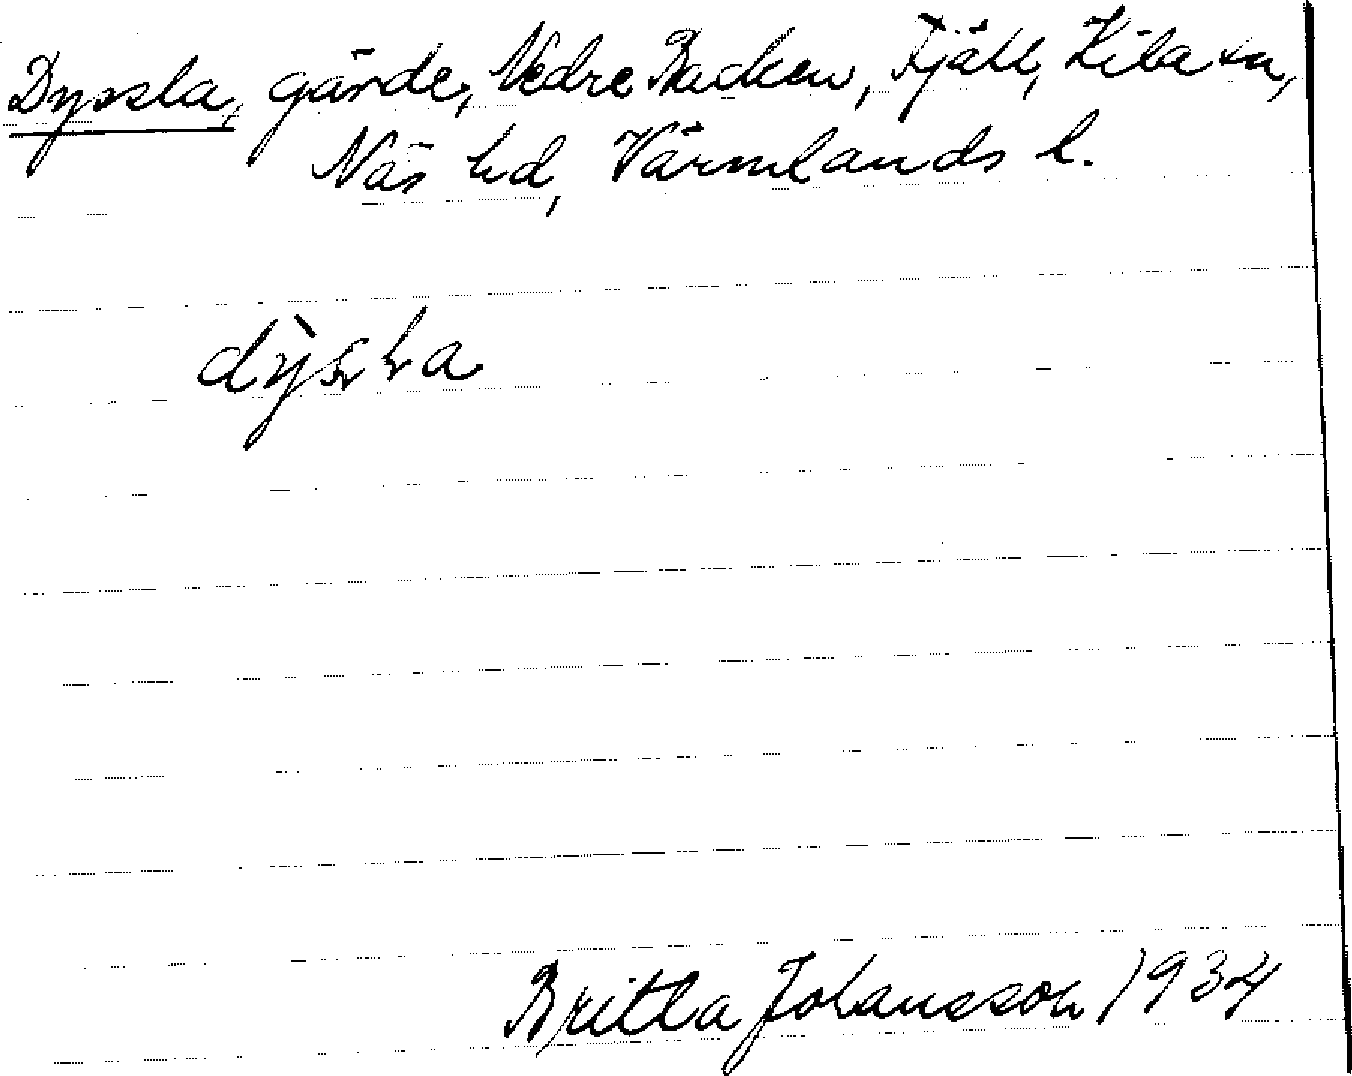 Dyssla, gärde, Nedre Backen, Fjäll, Kila sn,
Näs hd, Värmlands l.
Britta Johansson 1934